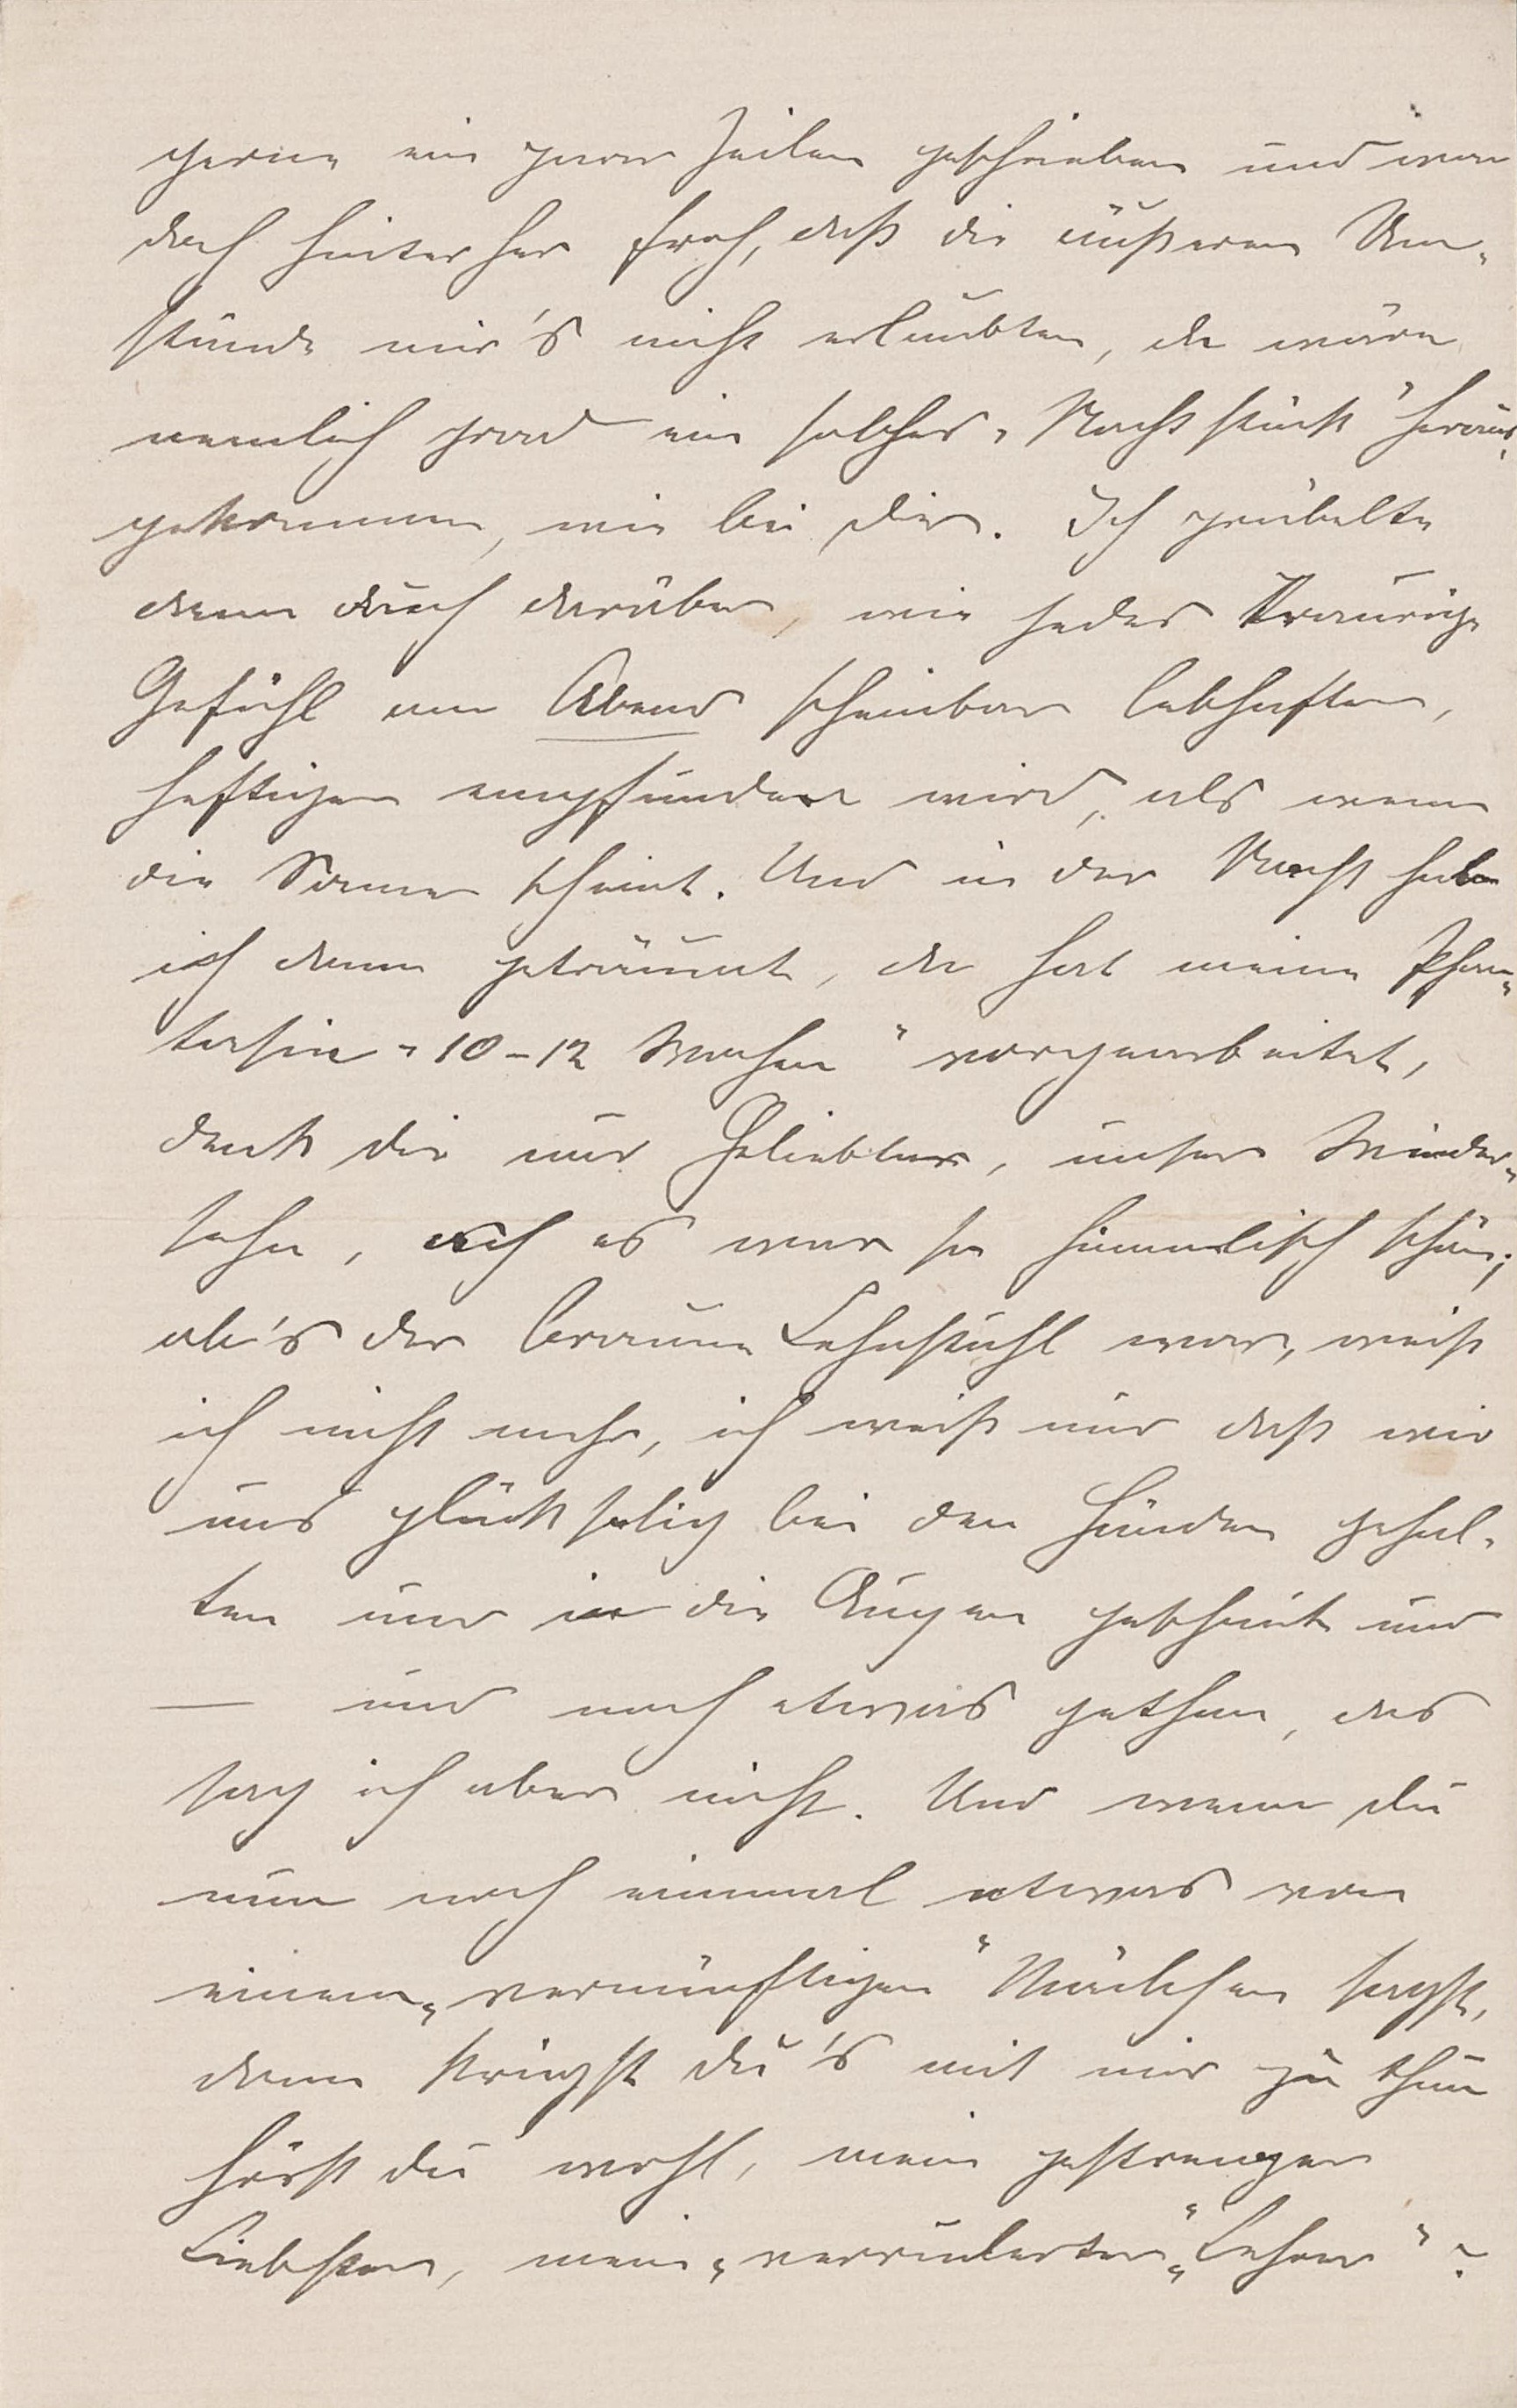 gerne ein paar Zeilen geschrieben und war
doch hinterher froh, daß die äußeren Um-
stände mir's nicht erlaubten, da wäre
nemlich grad ein solches „Nachtstück" heraus-
gekommen, wie bei Dir. Ich grübelte
dann auch darüber, wie jedes traurige
Gefühl am Abend scheinbar lebhafter,
heftiger empfunden wird, als wenn
die Sonne scheint. Und in der Nacht habe
ich dann geträumt, da hat meine Phan-
tasie „10-12 Wochen" vorgearbeitet,
denk Dir nur Geliebter, unser Wieder-
sehn, ach es war so himmlisch schön;
ob's der braune Lehnstuhl war, weiß
ich nicht mehr, ich weiß nur daß wir
uns glückselig bei den Händen gehal-
ten und in die Augen geschaut und
— und noch etwas gethan, das
sag ich aber nicht. Und wenn Du
nun noch einmal etwas von
einem „vernünftigen" Mädchen sagst,
dann kriegst Du's mit mir zu thun
hörst Du wohl, mein gestrenger
Liebster, mein „Lehrer"?